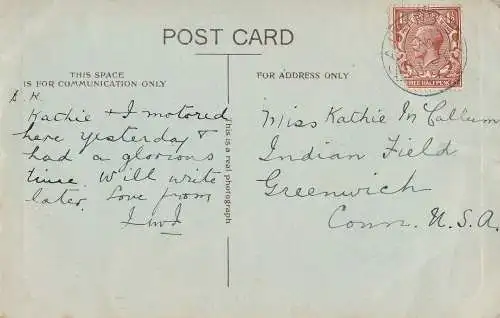 POST CARD
THIS SPACE
IS FOR COMMUNICATION ONLY
FOR ADDRESS ONLY
Kathie & I motored
here yesterday &
had a glorious
time. Will write
later. Love from
This is a real photograph
Miss Kathie McCallum
Indian Field
Greenwich
Conn. U.S.A.
THREE HALFPENCE